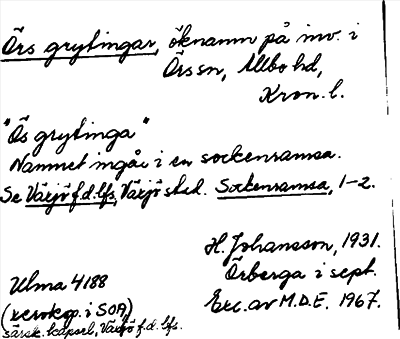 Örs grytingar, öknamn på inv. i
Örs sn, Allbo hd,
Kron. l.
"Ös grytinga"
Namnet ingår i en sockenramsa.
Se Växjö f.d. lfs, Växjö stad. Sockenramsa, 1-2.
H. Johansson, 1931.
Örberga i sept.
Exc. av M.D.E. 1967.
Ulma 4188
(xerokop. i SOA,
särsk. kapsel, Växjö f.d. lfs.